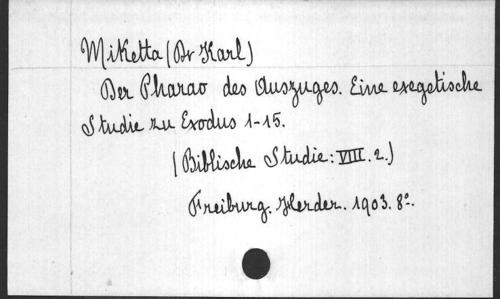 Miketta (Dr Karl)
Der Pharao des Auszuges. Eine exegetische
Studie zu Exodus 1-15.
(Biblische Studie: VIII. 2.)
Freiburg. Herder. 1903. 8°.